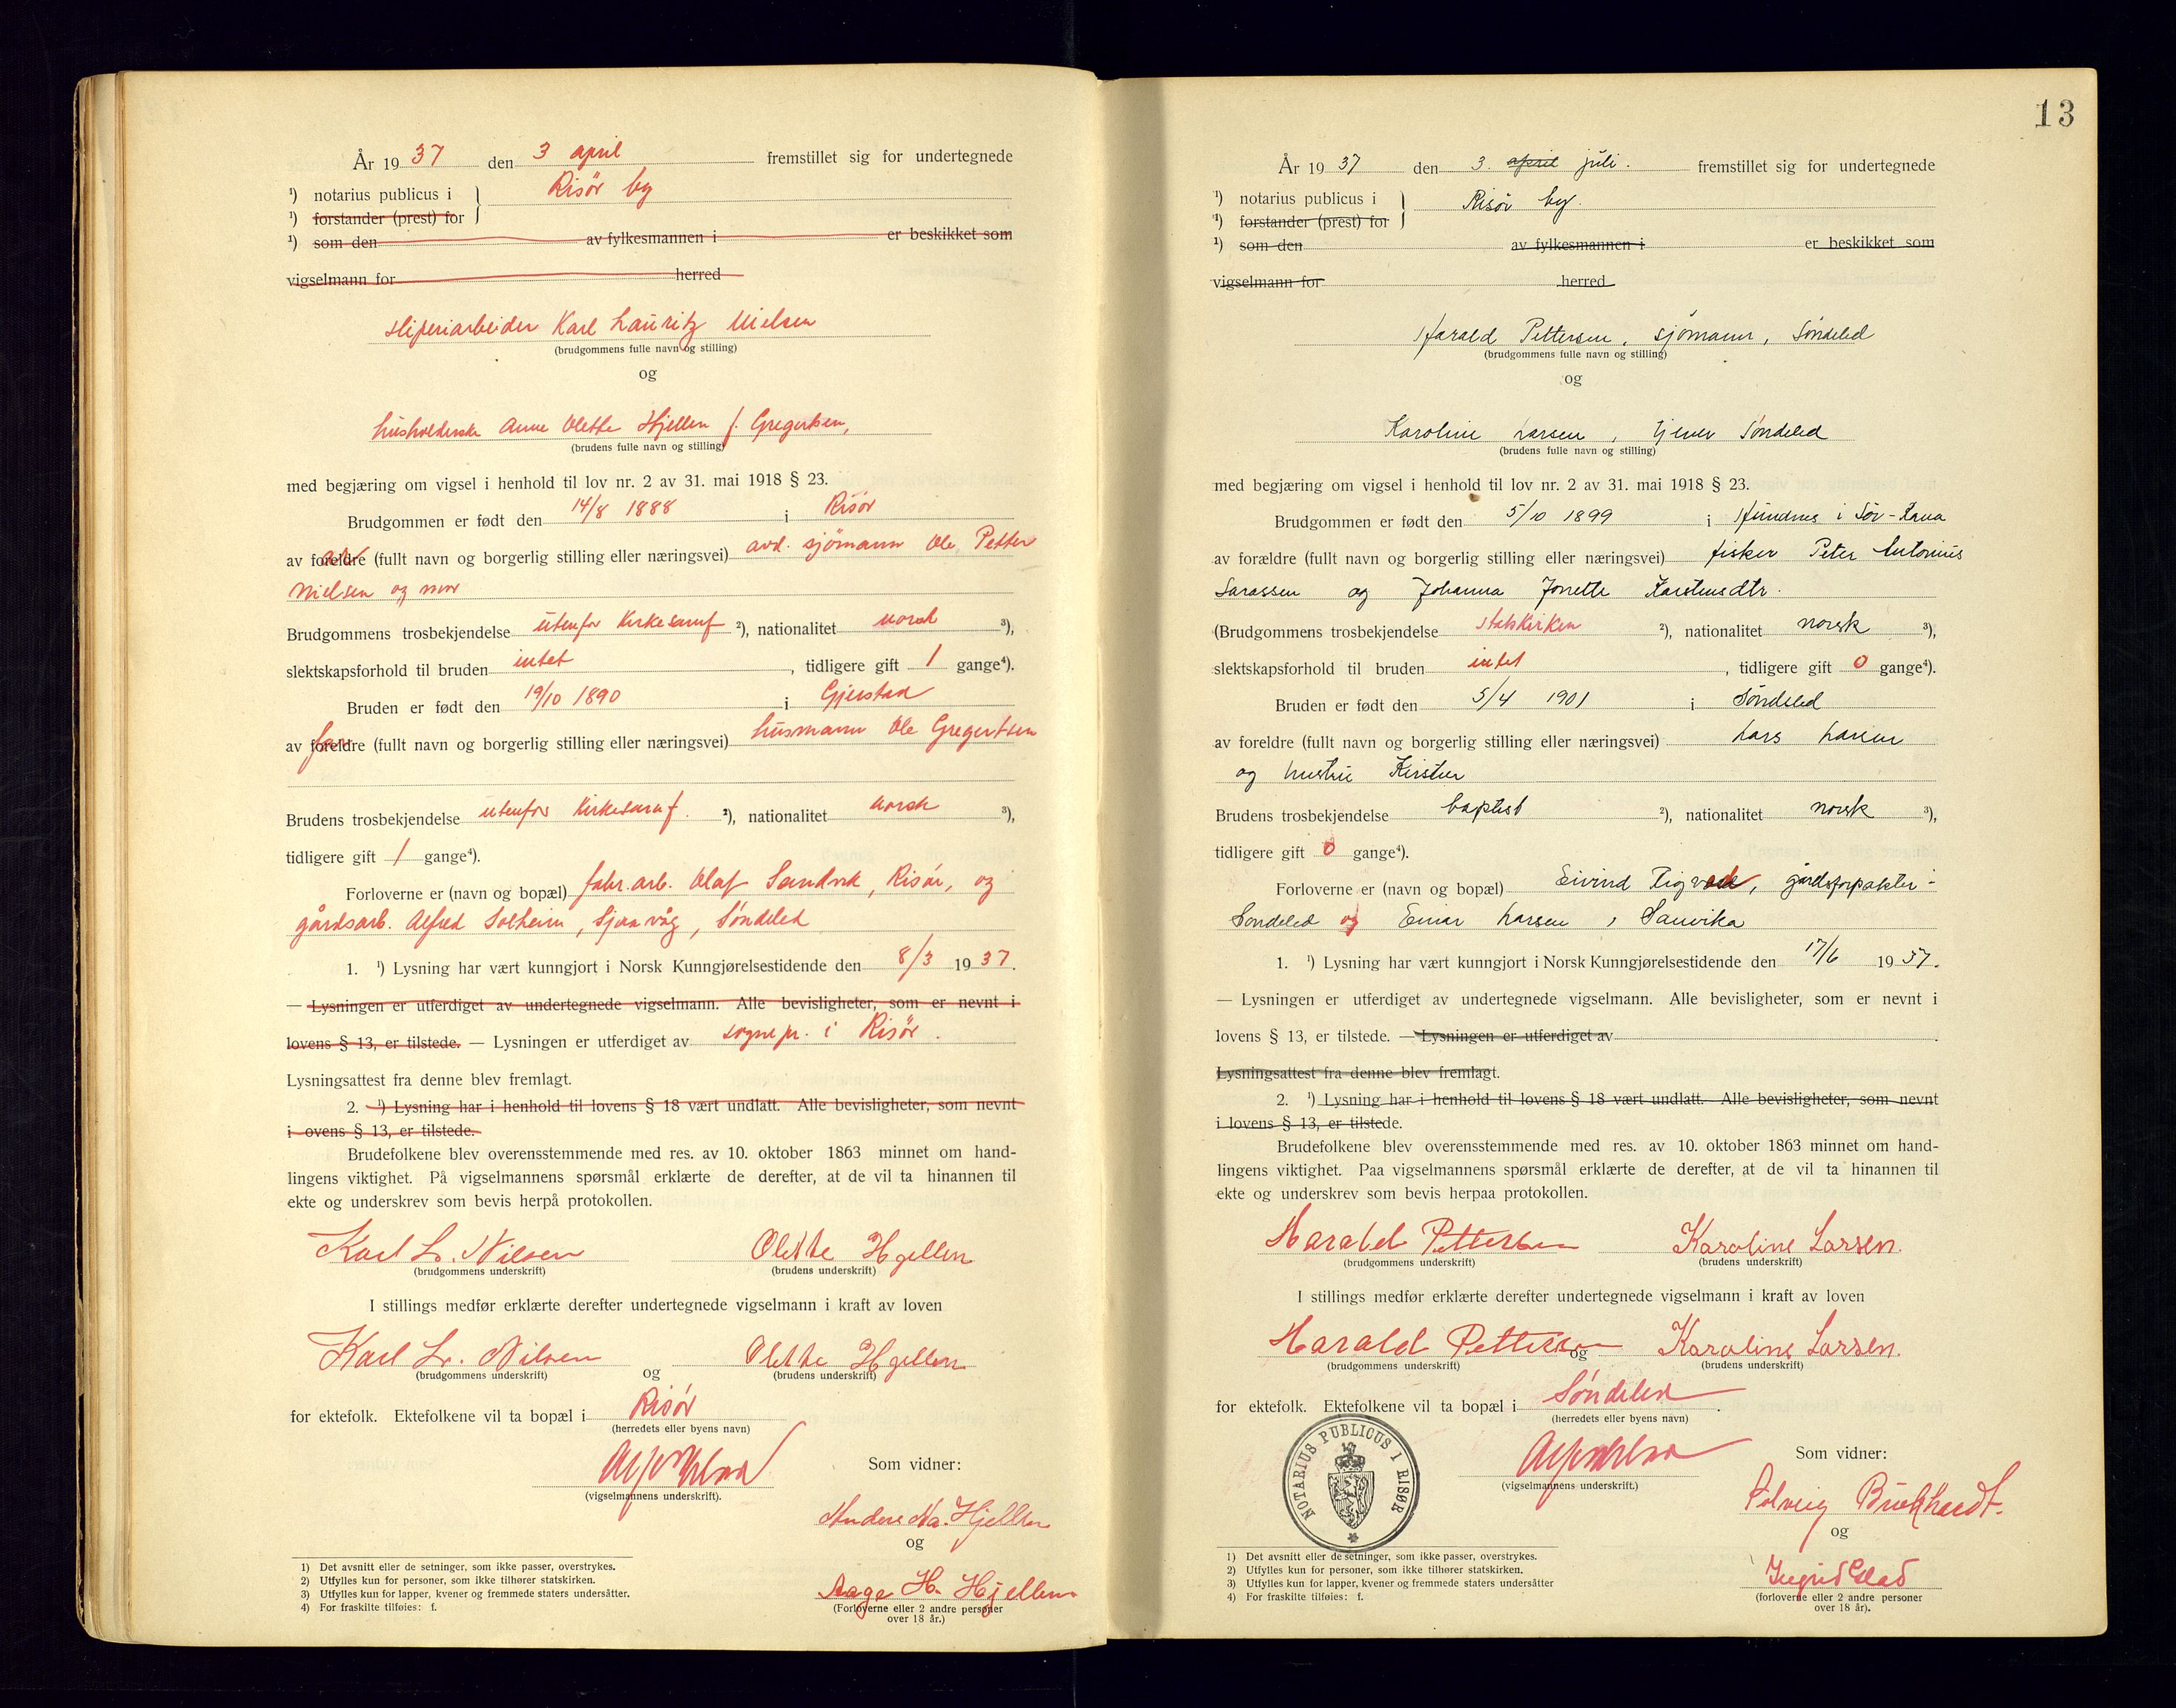 År 1937 den 3 april fremstillet sig for undertegnede
¹) notarius publicus i } Risör by
¹) forstander (prest) for
¹) som den av fylkesmannen i er beskikket som
vigselmann for herred
sliperiarbeider Karl Lauritz Nielsen
(brudgommens fulle navn og stilling)
og
husholderske Anne Olette Hjellen f. Gregertsen,
(brudens fulle navn og stilling)
med begjæring om vigsel i henhold til lov nr. 2 av 31. mai 1918 § 23.
Brudgommen er født den 14/8 1888 i Risör
av foreldre (fullt navn og borgerlig stilling eller næringsvei) avd. sjömann Ole Petter
Nielsen og mor
Brudgommens trosbekjendelse utenfor Kirkesamf ²), nationalitet norsk ³),
slektskapsforhold til bruden intet , tidligere gift 1 gange⁴).
Bruden er født den 19/10 1890 i Gjerstad
av foreldre (fullt navn og borgerlig stilling eller næringsvei) husmann Ole Gregertsen
far
Brudens trosbekjendelse utenfor Kirkesamf. ²), nationalitet norsk ³),
tidligere gift 1 gange⁴).
Forloverne er (navn og bopæl) fabr. arb. Olaf Sandvik, Risör, og
gårdsarb. Alfred Solheim, Sjåvåg, Söndeled
1. ¹) Lysning har vært kunngjort i Norsk Kunngjørelsestidende den 8/3 1937.
— Lysningen er utferdiget av undertegnede vigselmann. Alle bevisligheter, som er nevnt i
lovens § 13, er tilstede. — Lysningen er utferdiget av sognepr. i Risör.
Lysningsattest fra denne blev fremlagt.
2. ¹) Lysning har i henhold til lovens § 18 vært undlatt. Alle bevisligheter, som nevnt
i ovens § 13, er tilstede.
Brudefolkene blev overensstemmende med res. av 10. oktober 1863 minnet om hand-
lingens viktighet. På vigselmannens spørsmål erklærte de derefter, at de vil ta hinannen til
ekte og underskrev som bevis herpå protokollen.
Karl L. Nilsen Olette Hjellen
(brudgommens underskrift) (brudens underskrift)
I stillings medfør erklærte derefter undertegnede vigselmann i kraft av loven
Karl L. Nilsen og Olette Hjellen
(brudgommens underskrift) (brudens underskrift)
for ektefolk. Ektefolkene vil ta bopæl i Risör
(herredets eller byens navn)
(vigselmannens underskrift).
Som vidner:
Anders Na. Hjellen
og
Aage H. Hjellen
(Forloverne eller 2 andre personer
over 18 år.)
1) Det avsnitt eller de setninger, som ikke passer, overstrykes.
2) Utfylles kun for personer, som ikke tilhører statskirken.
3) Utfylles kun for lapper, kvener og fremmede staters undersåtter.
4) For fraskilte tilføies: f.
13
År 1937 den 3. april juli. fremstillet sig for undertegnede
¹) notarius publicus i } Risör by.
¹) forstander (prest) for
¹) som den av fylkesmannen i er beskikket som
vigselmann for herred
Harald Pettersen, sjömann, Söndeled
(brudgommens fulle navn og stilling)
og
Karoline Larsen, tjener Söndeled
(brudens fulle navn og stilling)
med begjæring om vigsel i henhold til lov nr. 2 av 31. mai 1918 § 23.
Brudgommen er født den 5/10 1899 i Hundnes i Sör-Rana
av forældre (fullt navn og borgerlig stilling eller næringsvei) fisker Peter Antonius
Larassen og Johanna Jonette Karstensdtr.
(Brudgommens trosbekjendelse statskirken ²), nationalitet norsk ³),
slektskapsforhold til bruden intet , tidligere gift 0 gange⁴).
Bruden er født den 5/4 1901 i Söndeled
av foreldre (fullt navn og borgerlig stilling eller næringsvei) Lars Larsen
og hustru Kirsten
Brudens trosbekjendelse baptist ²), nationalitet norsk ³),
tidligere gift 0 gange⁴).
Forloverne er (navn og bopæl) Eivind Rigvad, gårdsforpakter -
Söndeled og Einar Larsen, Sanvika
1. ¹) Lysning har vært kunngjort i Norsk Kunngjørelsestidende den 17/6 1937.
— Lysningen er utferdiget av undertegnede vigselmann. Alle bevisligheter, som er nevnt i
lovens § 13, er tilstede. — Lysningen er utferdiget av .
Lysningsattest fra denne blev fremlagt.
2. ¹) Lysning har i henhold til lovens § 18 vært undlatt. Alle bevisligheter, som nevnt
i lovens § 13, er tilstede.
Brudefolkene blev overensstemmende med res. av 10. oktober 1863 minnet om hand-
lingens viktighet. Paa vigselmannens spørsmål erklærte de derefter, at de vil ta hinannen til
ekte og underskrev som bevis herpaa protokollen.
Harald Pettersen Karoline Larsen.
(brudgommens underskrift) (brudens underskrift)
I stillings medfør erklærte derefter undertegnede vigselmann i kraft av loven
Harald Pettersen og Karoline Larsen.
(brudgommens underskrift) (brudens underskrift)
for ektefolk. Ektefolkene vil ta bopæl i Söndeled .
(herredets eller byens navn)
NOTARIUS PUBLICUS I RISØR
(vigselmannens underskrift.)
Som vidner:
Solveig Burkhardt.
og
Ingrid Glad
(forloverne eller 2 andre personer
over 18 år).
1) Det avsnitt eller de setninger, som ikke passer, overstrykes.
2) Utfylles kun for personer, som ikke tilhører statskirken.
3) Utfylles kun for lapper, kvener og fremmede staters undersåtter
4) For fraskilte tilføies: f.